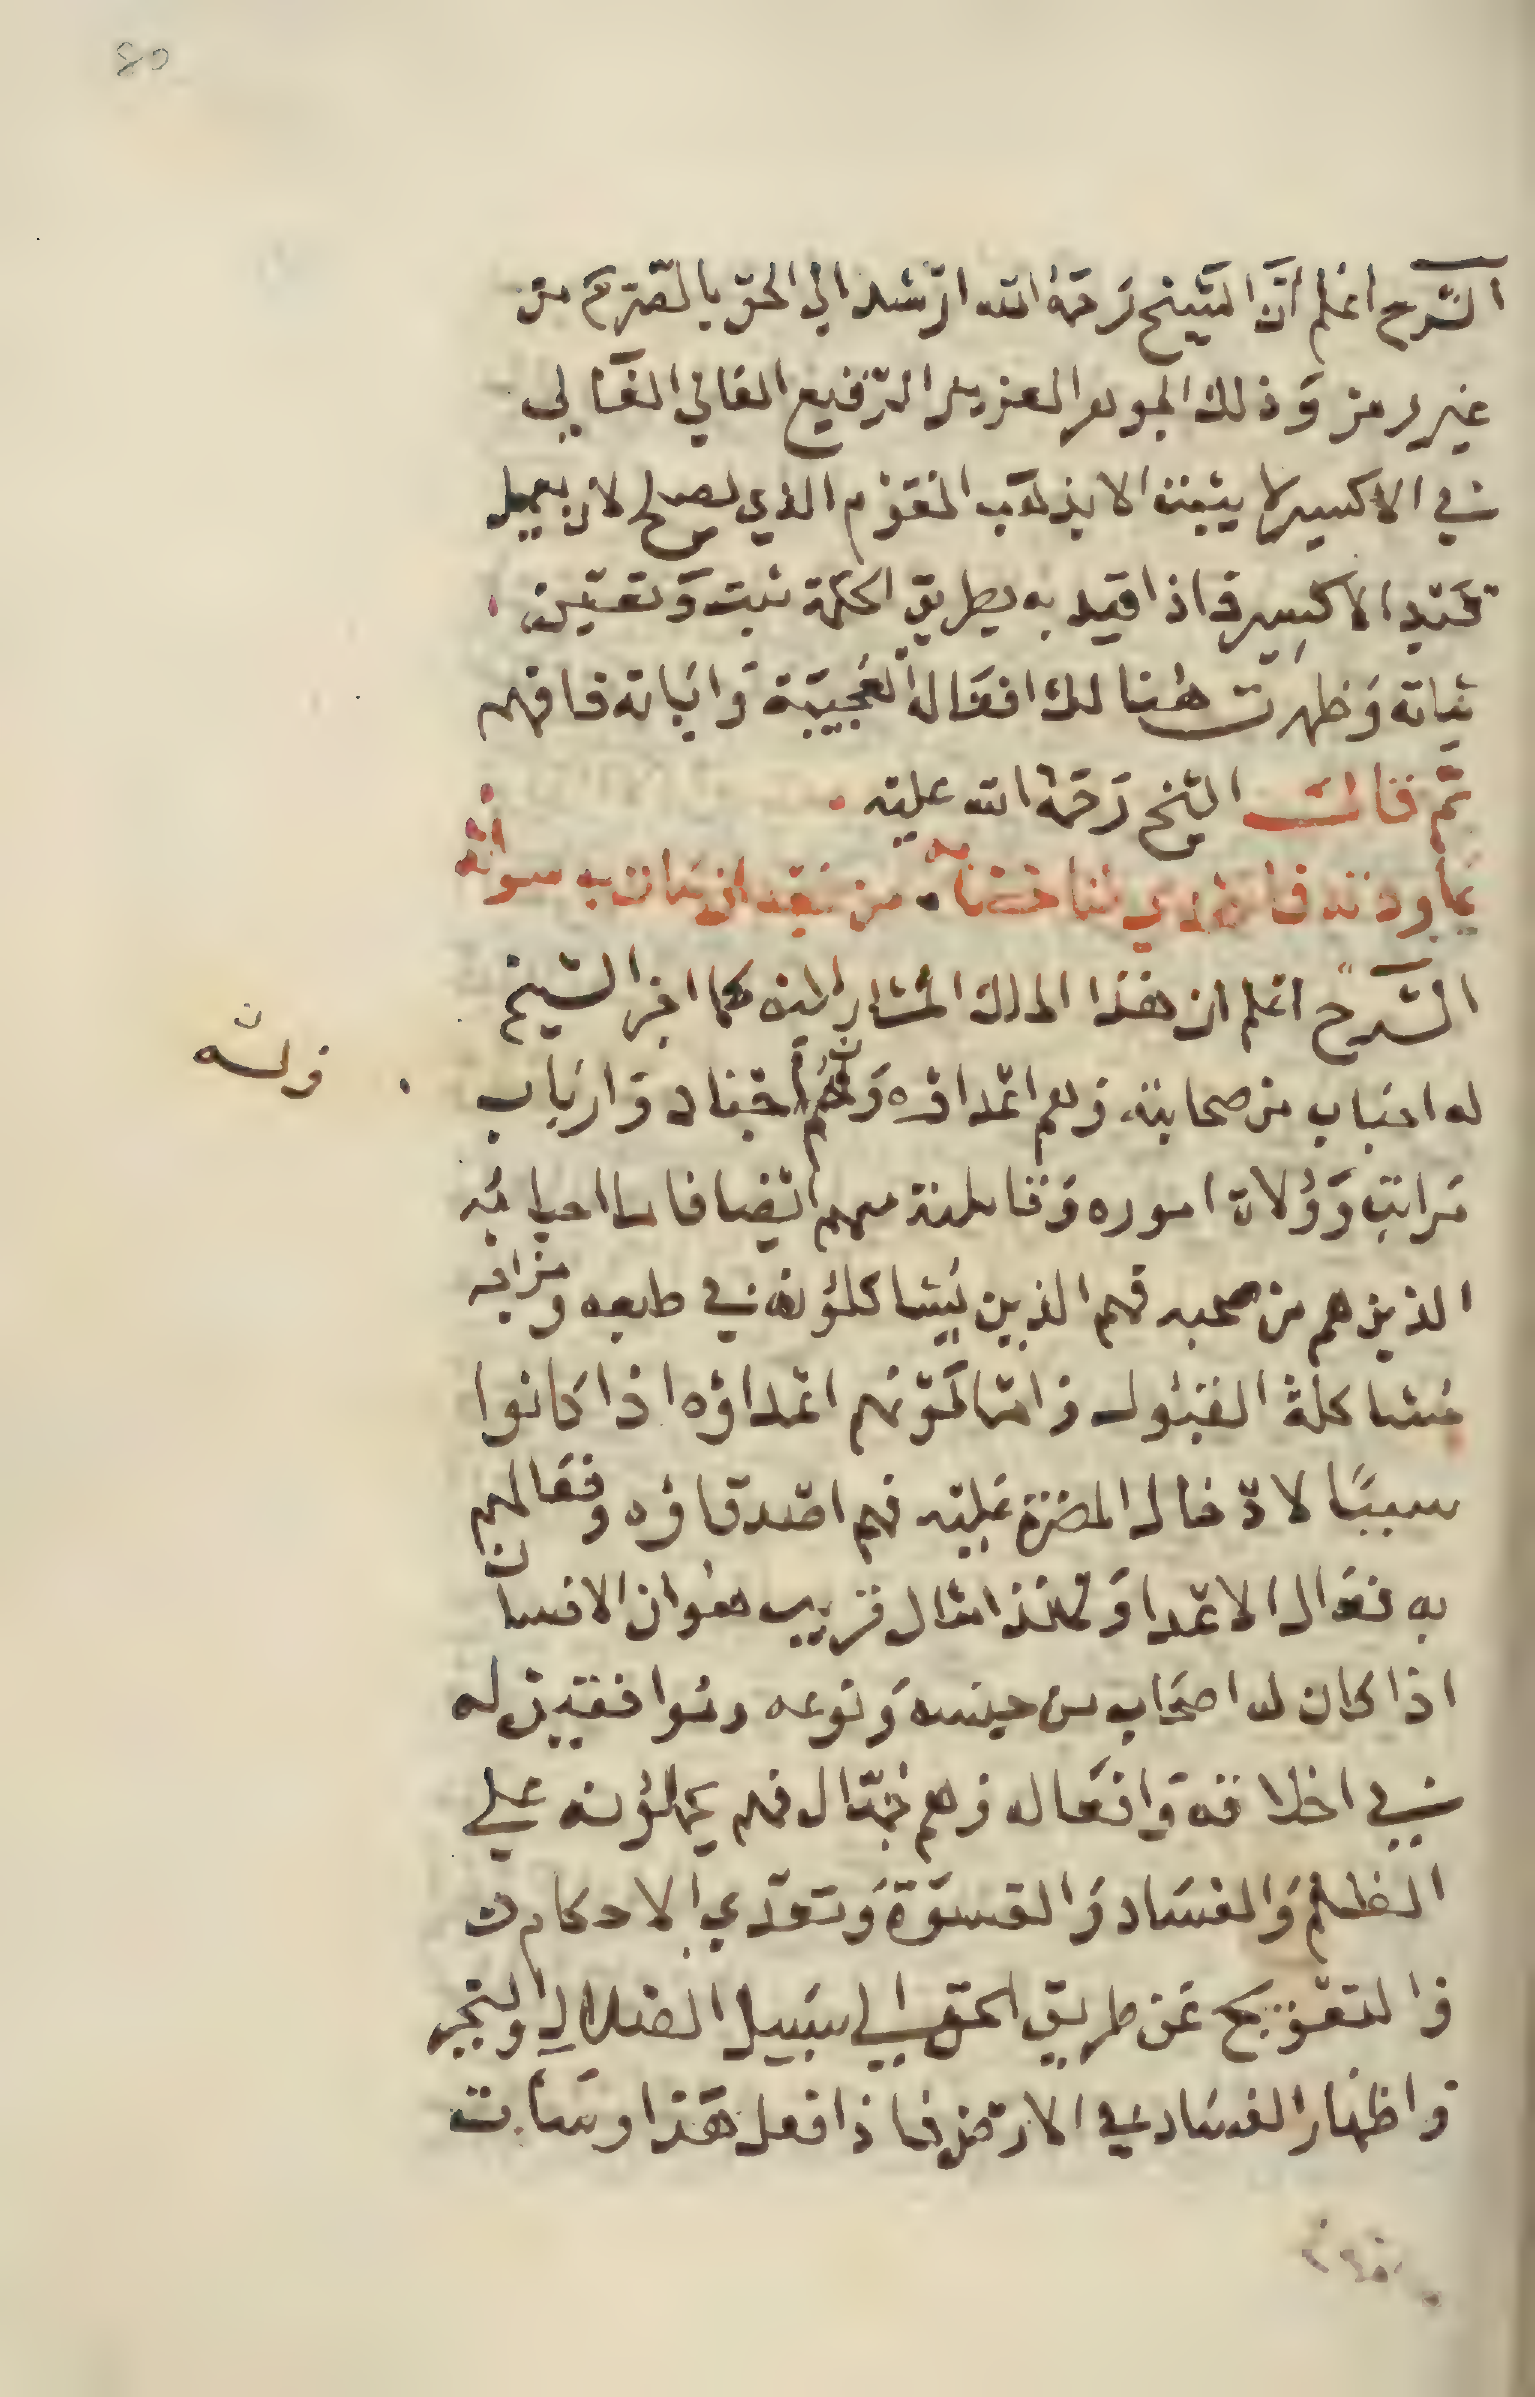 ٤٥
الشرح اعلم أنّ الشيخ رَحمَهُ الله ارشد الي الحق بالتصريح من
غير رمز وَذلك الجوهر العزيز الرفيع الغالي الفعَّا لي
في الاكسير لا يثبته الا بذهب المقوم الذي يصلح لان يعمل
الاكسير فاذا قيد به بطريق الحكمة ثبت وَتعين
ثباته وَظهرت هنالك افعَاله العجيبَة وَاثباته فافهم
ثم قال الشيخ رَحمَهُ الله عليه
من بعد ان كان به
الشرح اعلم ان هذا الملك المشار اليه كما اخبر الشيخ
له احبَاب من صحابته وهم اعداؤه وَلهم اجناد وَاربَاب
مَراتب وَوُلاة اموره وَقاتلته منهم ايضا فاما احبابه
الذين هم من صحبه فهم الذين يُشاكلونه في طبعه ومزاجه
مُشاكلة القبُول وَاما كونهم اعداؤه اذا كانوا
سببًا لادخال المضرة عليه فهم اصدقاؤه وفعَالهم
به فعَال الاعدا وَلهذا مثال قريب هُو ان الانسان
اذا كان له اصحَاب من جنسه وَنوعه ومُوافقين له
في اخلاقه وَافعَاله وَهم جهّال فهم يحملونه علي
الظلم وَالفسَاد وَالقسوَة وَتعدي الاحكام
وَالتعويج عَن طريق الحق الي سَبيل الضلال والتجبر
وَاظهار الفسَاد في الارض فاذا فعل هَذا وسَاءت